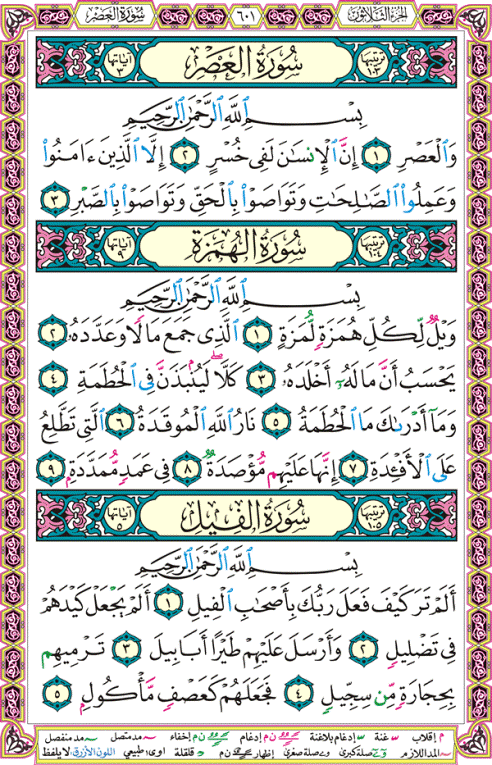 سُورَةُ العَصْرِ ٦٠١ الجُزْءُ الثَّلَاثُونَ
تَرتِيبُهَا ١٠٣ سُورَةُ العَصْرِ آيَاتُهَا ٣
بِسْمِ ٱللَّهِ ٱلرَّحْمَٰنِ ٱلرَّحِيمِ
وَٱلْعَصْرِ ١ إِنَّ ٱلْإِنسَٰنَ لَفِى خُسْرٍ ٢ إِلَّا ٱلَّذِينَ ءَامَنُوا۟
وَعَمِلُوا۟ ٱلصَّٰلِحَٰتِ وَتَوَاصَوْا۟ بِٱلْحَقِّ وَتَوَاصَوْا۟ بِٱلصَّبْرِ ٣
تَرتِيبُهَا ١٠٤ سُورَةُ الهُمَزَةِ آيَاتُهَا ٩
بِسْمِ ٱللَّهِ ٱلرَّحْمَٰنِ ٱلرَّحِيمِ
وَيْلٌ لِّكُلِّ هُمَزَةٍ لُّمَزَةٍ ١ ٱلَّذِى جَمَعَ مَالًا وَعَدَّدَهُۥ ٢
يَحْسَبُ أَنَّ مَالَهُۥٓ أَخْلَدَهُۥ ٣ كَلَّا ۖ لَيُنۢبَذَنَّ فِى ٱلْحُطَمَةِ ٤
وَمَآ أَدْرَىٰكَ مَا ٱلْحُطَمَةُ ٥ نَارُ ٱللَّهِ ٱلْمُوقَدَةُ ٦ ٱلَّتِى تَطَّلِعُ
عَلَى ٱلْأَفْـِٔدَةِ ٧ إِنَّهَا عَلَيْهِم مُّؤْصَدَةٌ ٨ فِى عَمَدٍ مُّمَدَّدَةٍۭ ٩
تَرتِيبُهَا ١٠٥ سُورَةُ الفِيلِ آيَاتُهَا ٥
بِسْمِ ٱللَّهِ ٱلرَّحْمَٰنِ ٱلرَّحِيمِ
أَلَمْ تَرَ كَيْفَ فَعَلَ رَبُّكَ بِأَصْحَٰبِ ٱلْفِيلِ ١ أَلَمْ يَجْعَلْ كَيْدَهُمْ
فِى تَضْلِيلٍ ٢ وَأَرْسَلَ عَلَيْهِمْ طَيْرًا أَبَابِيلَ ٣ تَرْمِيهِم
بِحِجَارَةٍ مِّن سِجِّيلٍ ٤ فَجَعَلَهُمْ كَعَصْفٍ مَّأْكُولٍۭ ٥
م إقلاب غنة إدغام بلاغنة ن م إدغام ن م إخفاء مد متصل مد منفصل
المد اللازم صلة كبرى صلة صغرى إظهار ن م قلقلة اوى، طبيعي اللون الأزرق، لا يلفظ